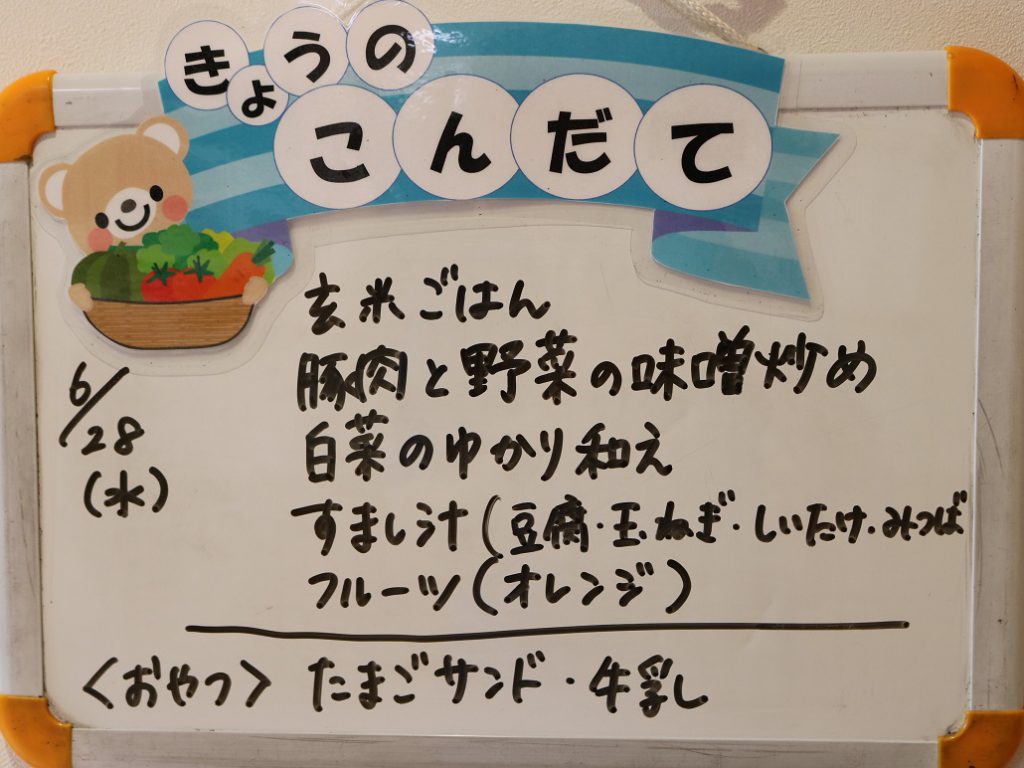 きょうの
こんだて
6/28
(水)
玄米ごはん
豚肉と野菜の味噌炒め
白菜のゆかり和え
すまし汁(豆腐・玉ねぎ・しいたけ・みつば
フルーツ(オレンジ)
<おやつ> たまごサンド・牛乳